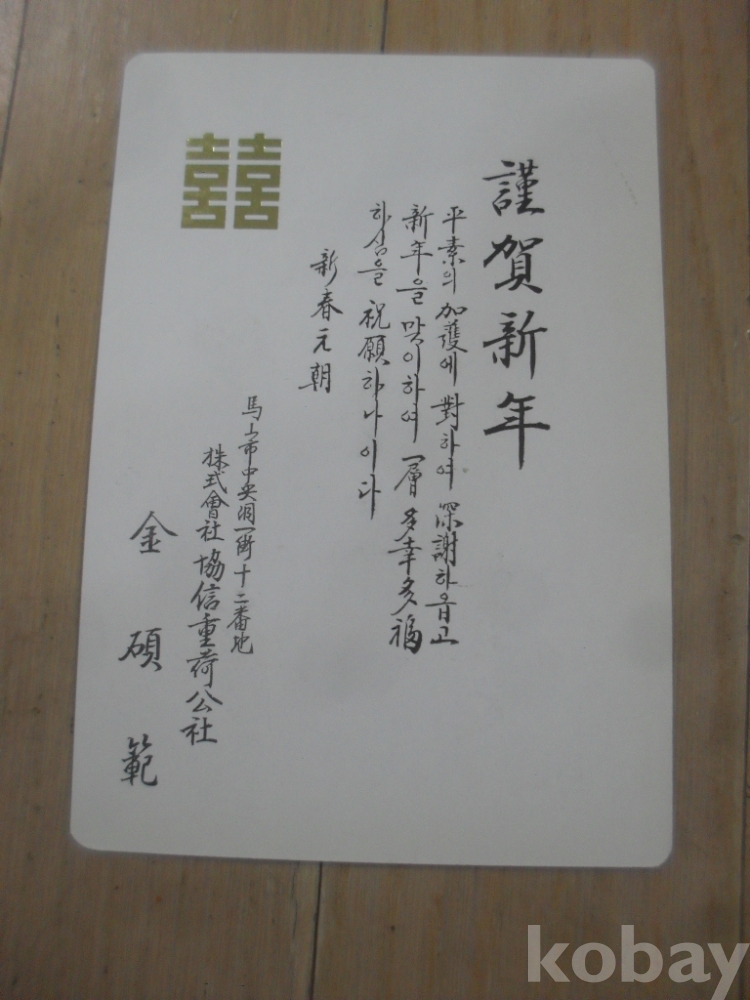 謹賀新年
平素의 加護에 對하여 深謝하옵고
新年을 맞이하여 一層 多幸多福
하심을 祝願하나이다
新春元朝
馬山市中央洞一街十二番地
株式會社 協信重荷公社
金碩範
囍
kobay